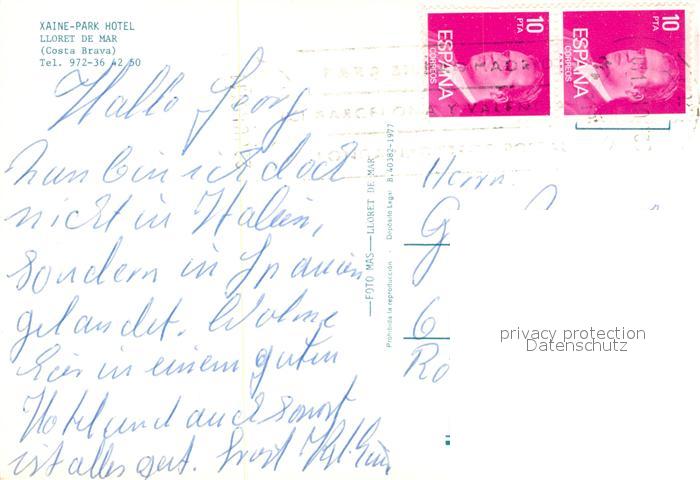 XAINE-PARK HOTEL
LLORET DE MAR
(Costa Brava)
Tel. 972-36 42 50
10
PTA
ESPAÑA
CORREOS
10
PTA
ESPAÑA
CORREOS
Hallo Georg
nun bin ich doch
nicht in Italien,
sondern in Spanien
gelandet. Wohne
hier in einem guten
Hotel und auch sonst
ist alles gut.
FOTO MAS — LLORET DE MAR
Prohibida la reproducción - Depósito Legal B. 40382-1977
Herrn
G
6
Ro
privacy protection
Datenschutz